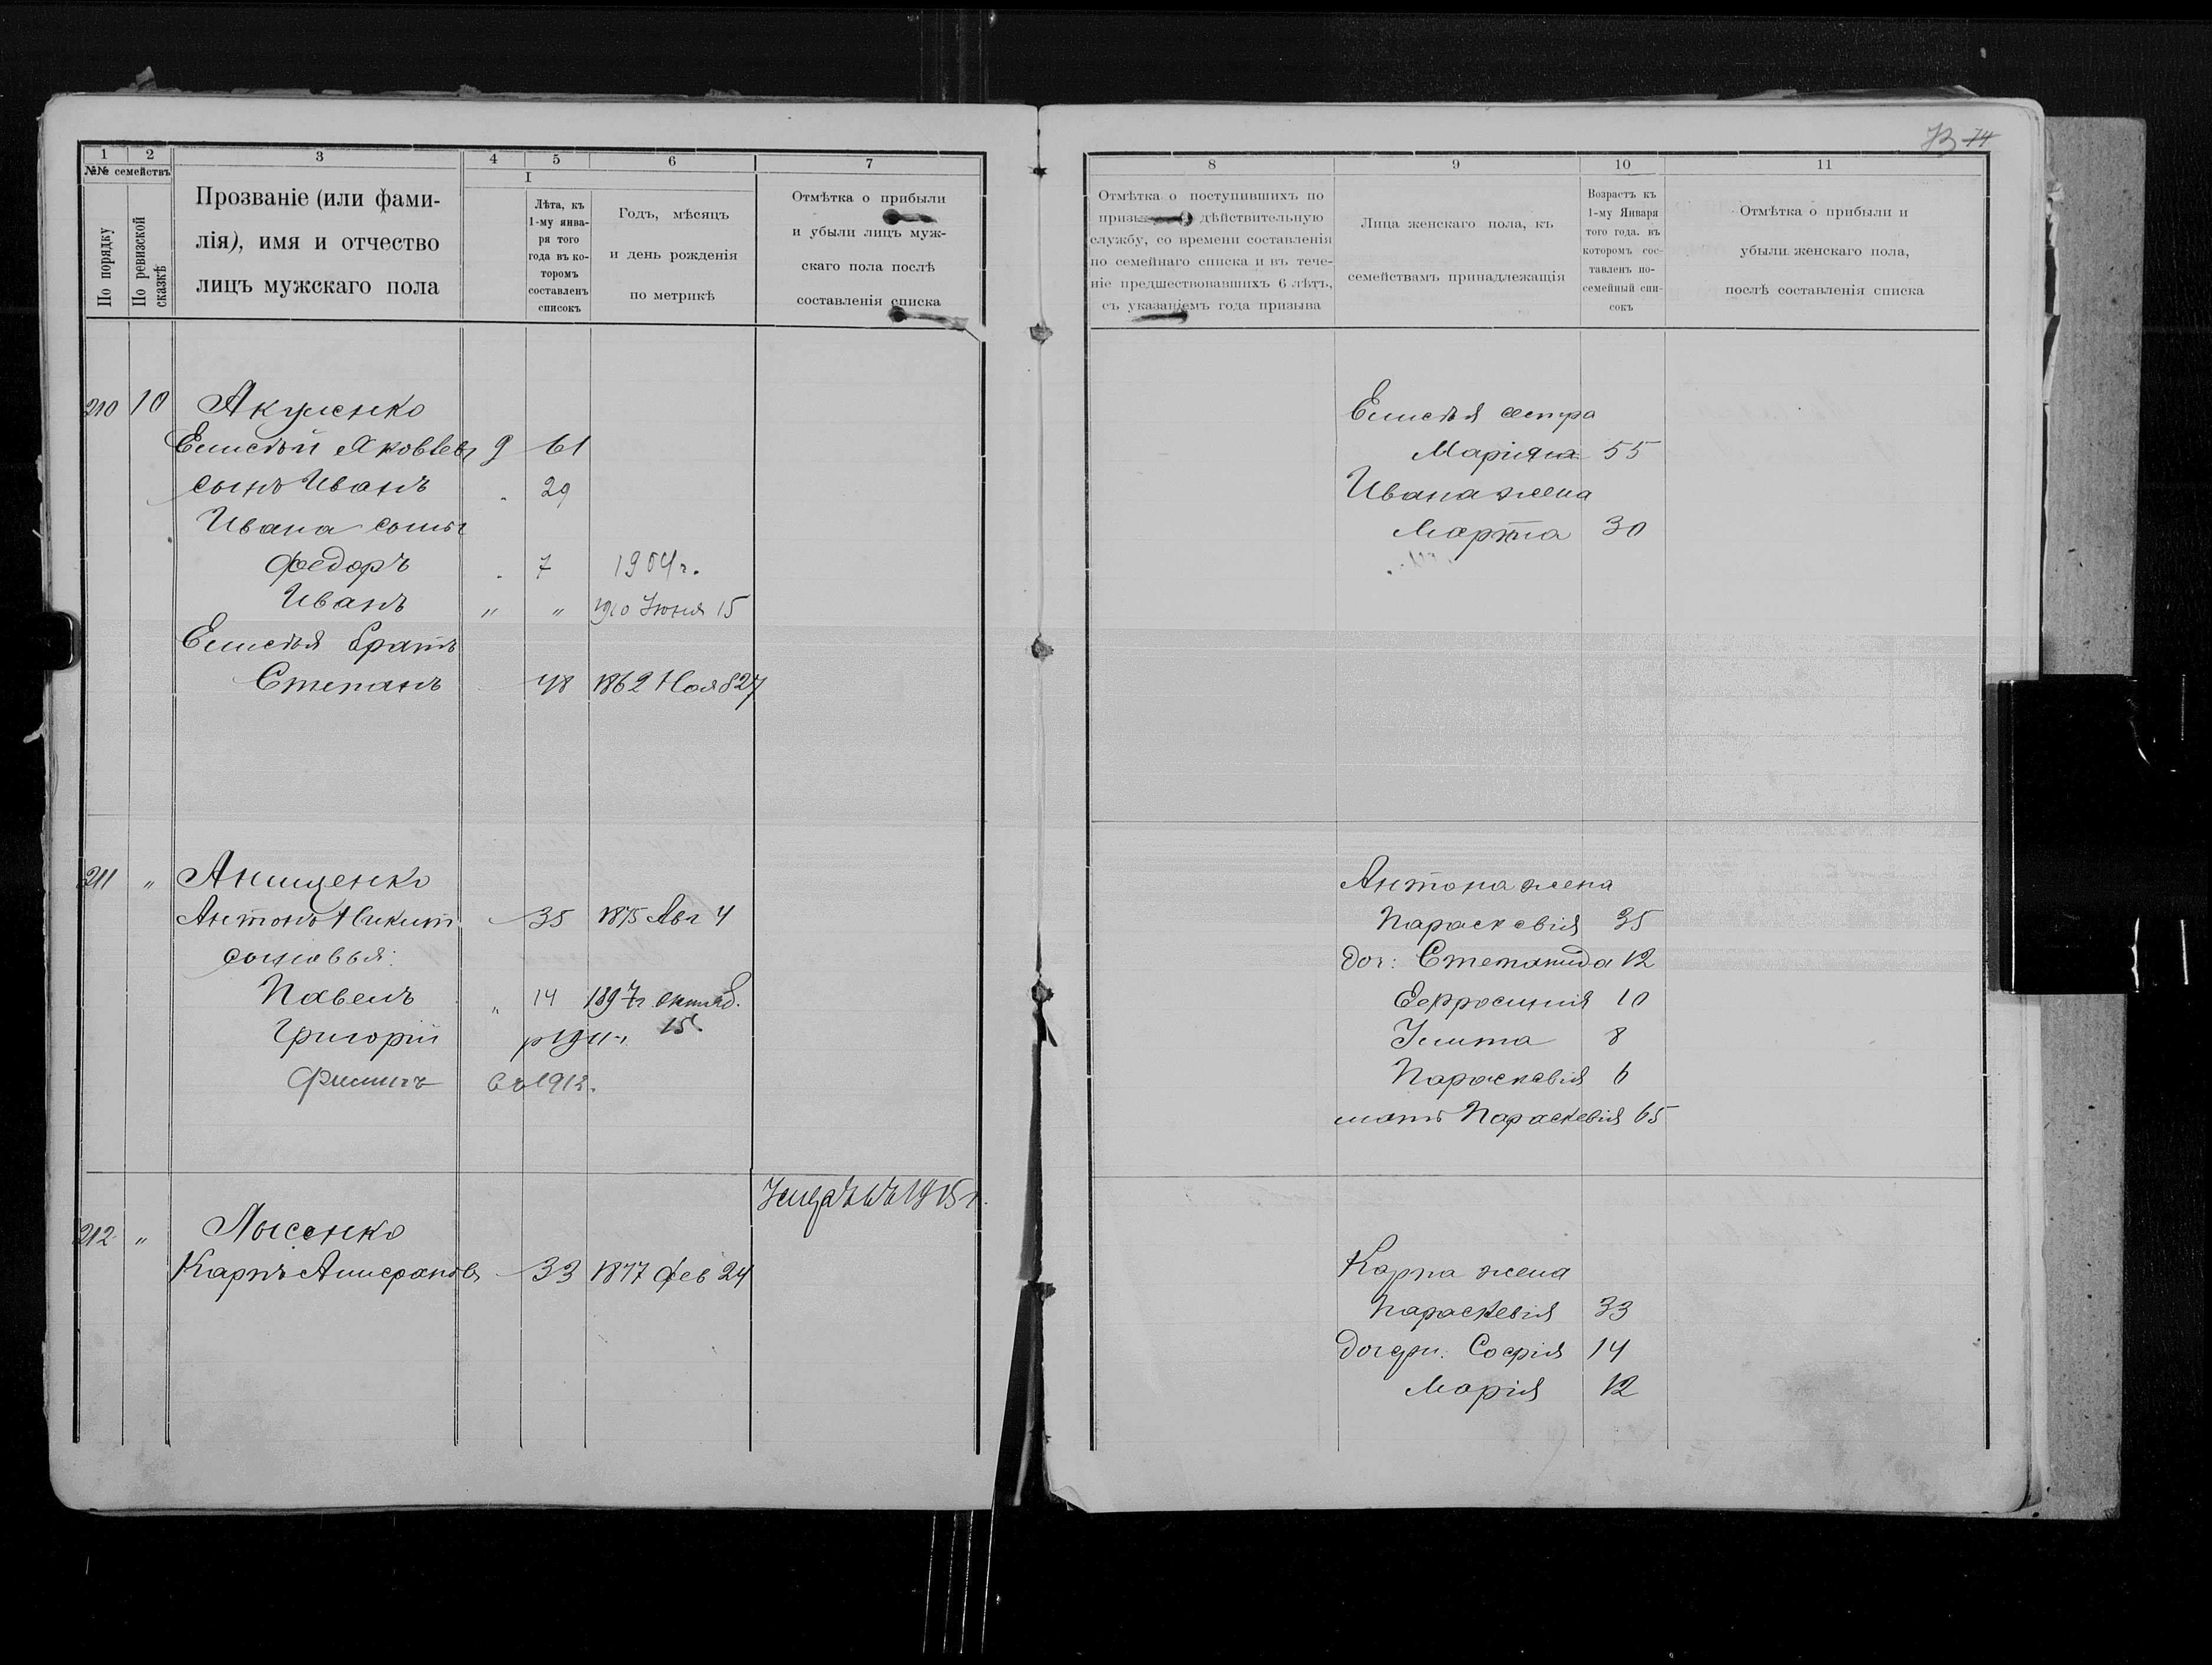 1
2
3
4
5
6
7
№№ семействъ
По порядку
По ревизской сказкѣ
Прозваніе (или фами-
лія), имя и отчество
лицъ мужскаго пола
I
Лѣта, къ
1-му янва-
ря того
года въ ко-
торомъ
составленъ
списокъ
Годъ, мѣсяцъ
и день рожденія
по метрикѣ
Отмѣтка о прибыли
и убыли лицъ муж-
скаго пола послѣ
составленія списка
210 10 Акуленко
Елисѣй Яковлев 9 61
сынъ Иванъ „ 29
Ивана сыны
Федоръ „ 7 1904 г.
Иванъ „ „ 1910 Іюня 15
Елисѣя братъ
Степанъ 48 1862 Нояб 27
211 „ Анищенко
Антонъ Никит 35 1875 Авг 4
сыновья:
Павелъ „ 14 1897 г. октяб.
15
Григорій р 1911 г.
Филипъ въ 1912.
Умеръ въ 1915 г.
212 „ Лысенко
Карпъ 33 1877 Фев 24
73 74
8
9
10
11
Отмѣтка о поступившихъ по
дѣйствительную
службу, со времени составленія
по семейнаго списка и въ тече-
ніе предшествовавшихъ 6 лѣтъ,
съ указаніемъ года призыва
Лица женскаго пола, къ
семействамъ принадлежащія
Возрастъ къ
1-му Января
того года. въ
которомъ сос-
тавленъ по-
семейный спи-
сокъ
Отмѣтка о прибыли и
убыли женскаго пола,
послѣ составленія списка
Елисѣя сестра
55
Ивана жена
Марта 30
Антона жена
Параскевія 35
доч: Степанида 12
Ефросинія 10
8
Параскевія 6
мать Параскевія 65
Карпа жена
Параскевія 33
дочери: Софія 14
Марія 12